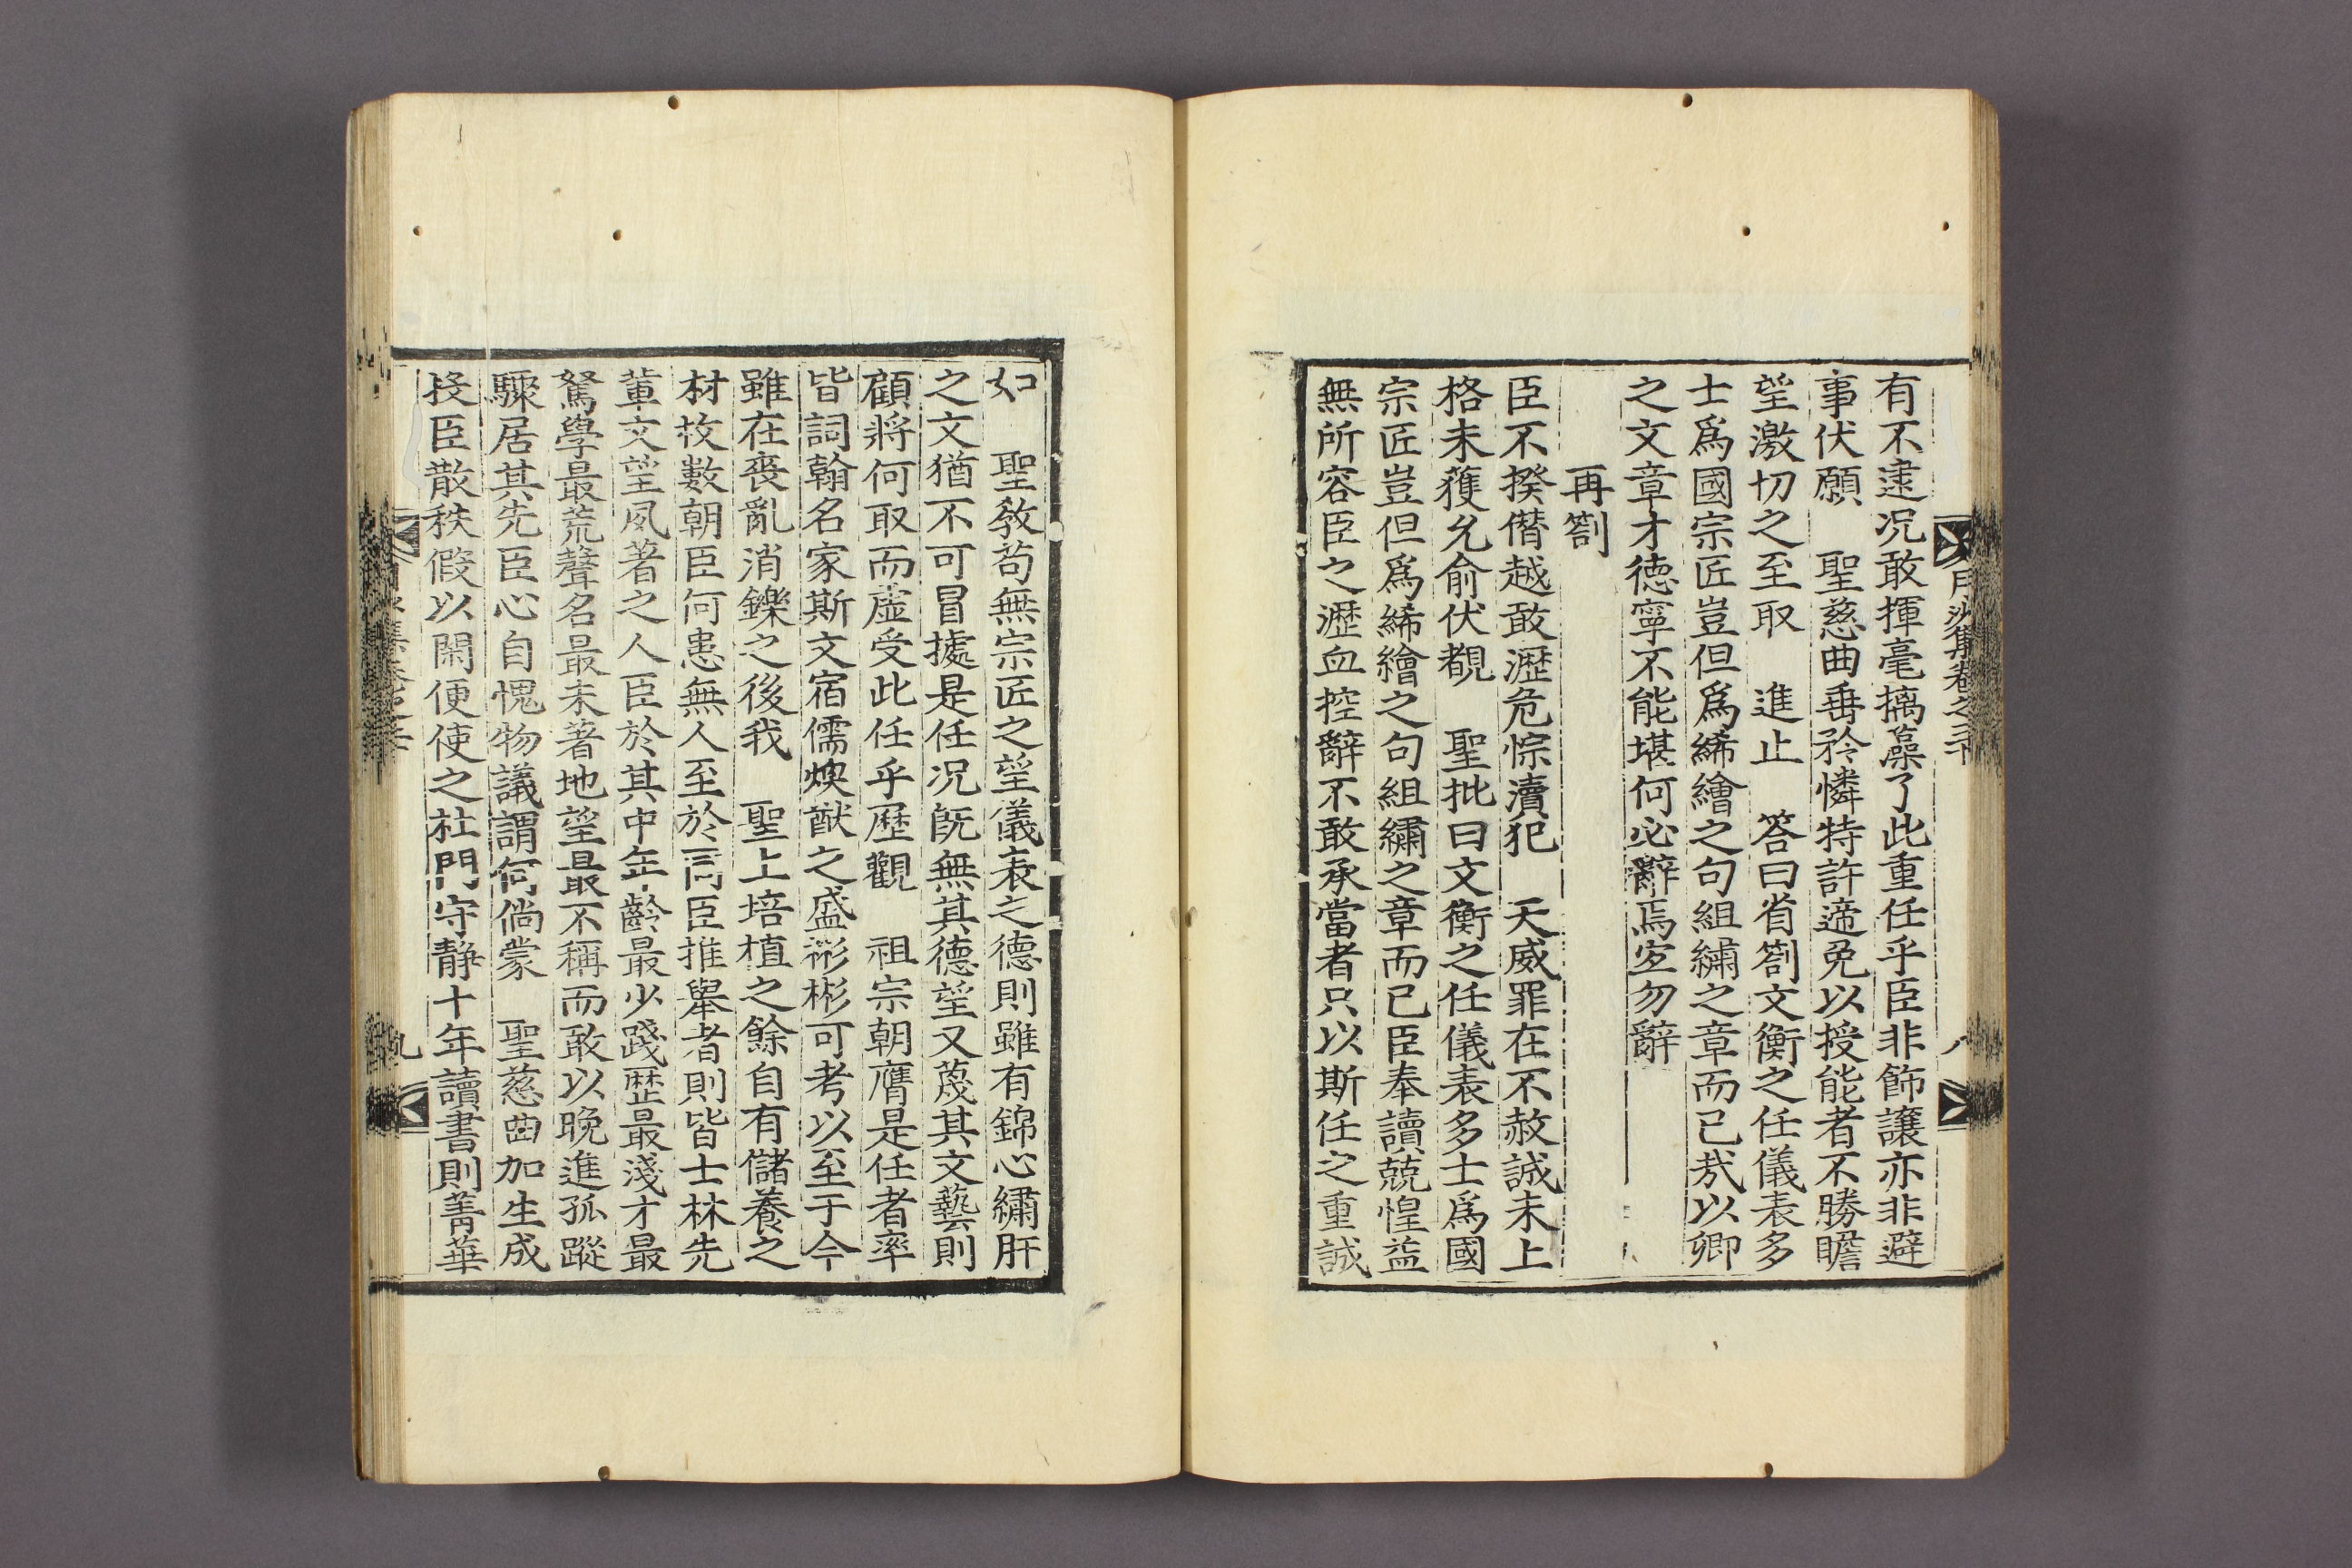 月沙集卷之三十
八
有不逮况敢揮毫摛藻了此重任乎臣非飾讓亦非避
事伏願 聖慈曲垂矜憐特許遞免以授能者不勝瞻
望激切之至取 進止 答曰省箚文衡之任儀表多
士爲國宗匠豈但爲絺繪之句組繡之章而已㢤以卿
之文章才德寧不能堪何必辭焉宜勿辭
再箚
臣不揆僭越敢瀝危悰瀆犯 天威罪在不赦誠未上
格未獲兊俞伏覩 聖批曰文衡之任儀表多士爲國
宗匠豈但爲絺繪之句組繡之章而已臣奉讀兢惶益
無所容臣之瀝血控辭不敢承當者只以斯任之重誠
如 聖敎苟無宗匠之望儀表之德則雖有錦心繡肝
之文猶不可冒據是任况旣無其德望又蔑其文藝則
顧將何取而虛受此任乎歷觀 祖宗朝膺是任者率
皆詞翰名家斯文宿儒煥猷之盛彬彬可考以至于今
雖在喪亂消鑠之後我 聖上培植之餘自有儲養之
材枚數朝臣何患無人至於同臣推舉者則皆士林先
輩文望夙著之人臣於其中年齡最少踐歷最淺才最
駑學最荒聲名最未著地望最不稱而敢以晩進孤蹤
驟居其先臣心自愧物議謂何倘蒙 聖慈曲加生成
投臣散秩假以閑便使之杜門守静十年讀書則菁華
九